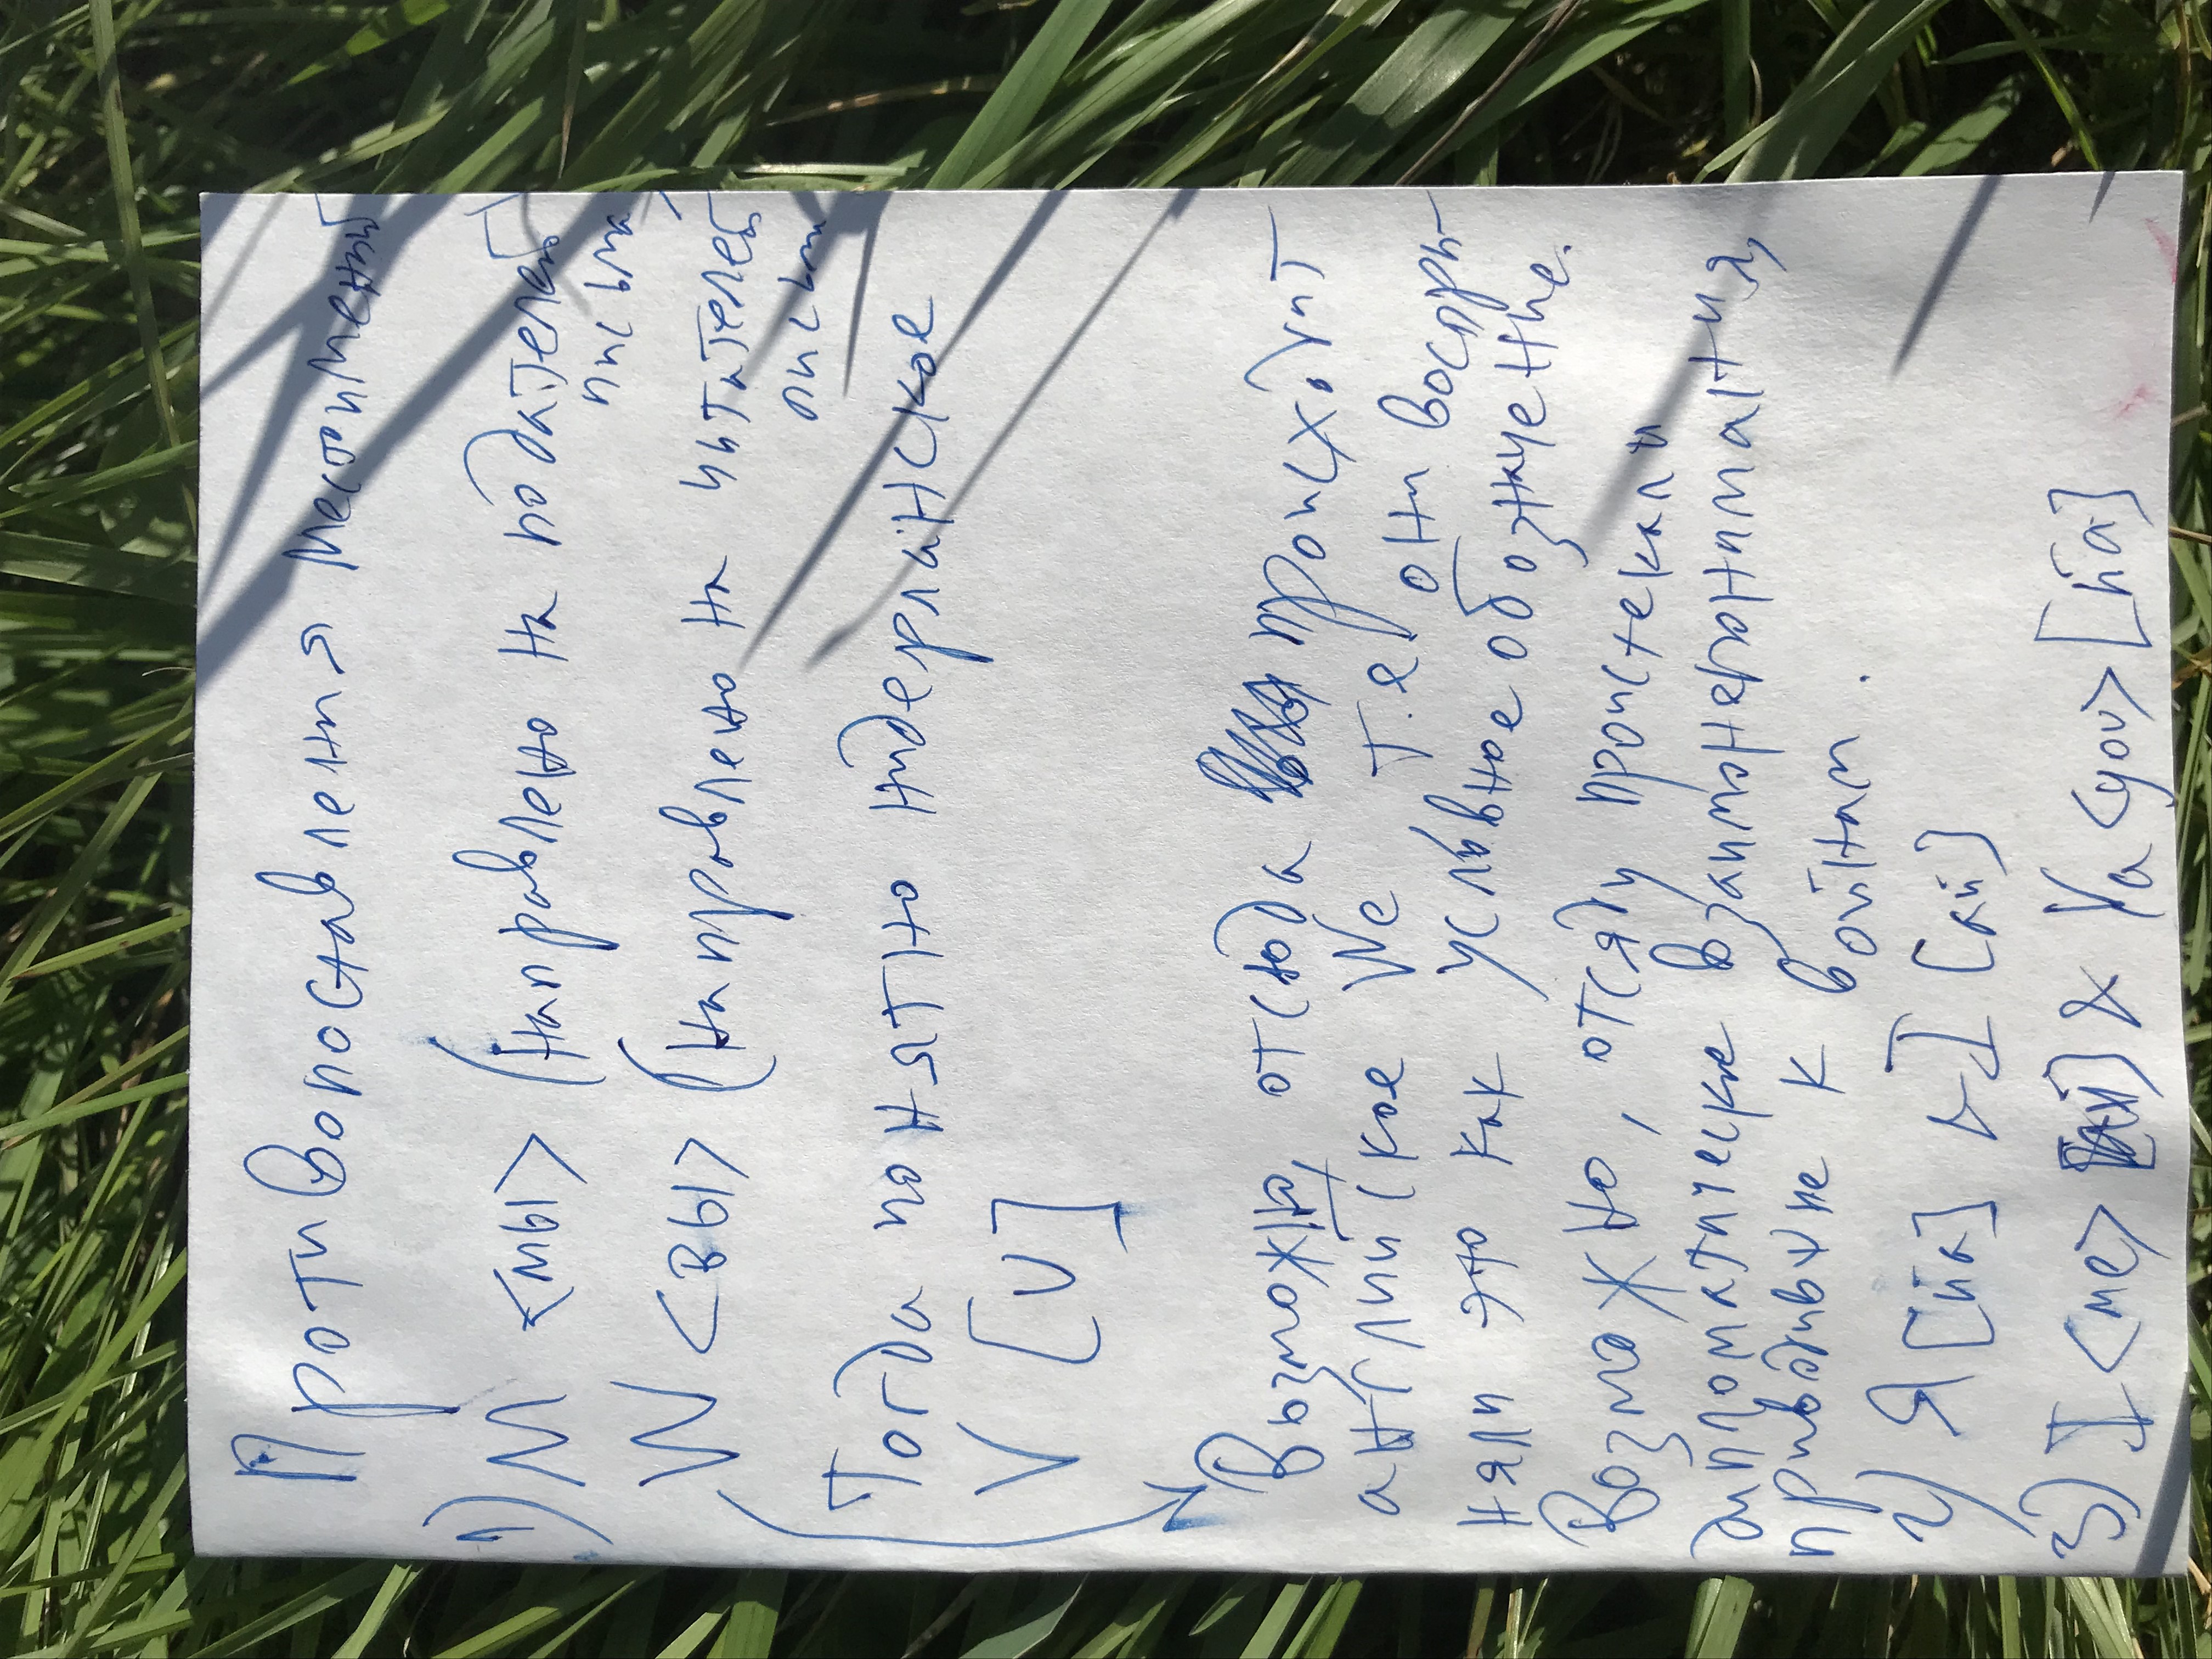 Противопоставления местоимений
1) M <мы> (направлено на подателей
письма)
W <вы> (направлено на чытателей
письма)
Тогда понятно нидерланское
V [U]
Возможно, отсюда происходит
английское We, т.е. они воспри-
няли это как условное обозначение.
Возможно, отсяду проистекали
дипломатические взаимонепонимания,
приводившие к войнам.
2) Я [йа] & I [ай]
3) I <me> [ай] & Ya <you> [йа]